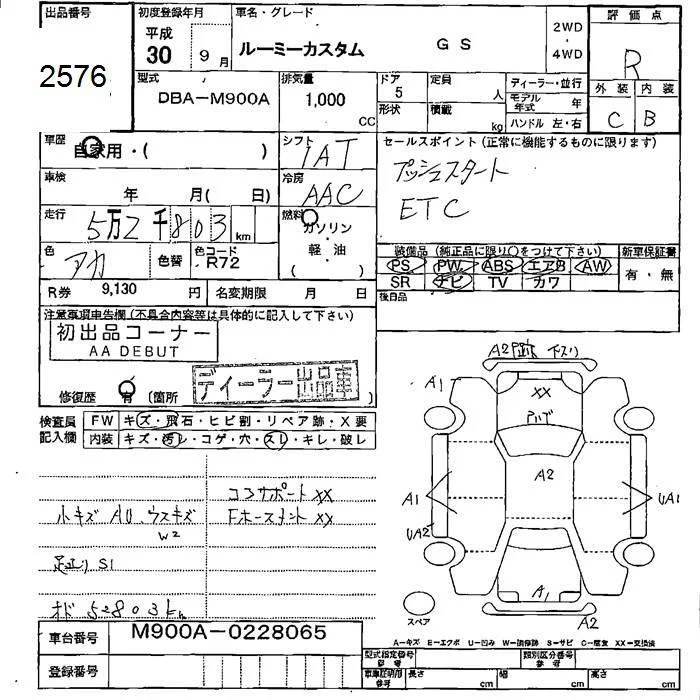 出品番号
2576
初度登録年月
平成
30 9月
車名・グレード
ルーミーカスタム GS
2WD
・
4WD
評価点
R
外装 内装
C B
型式
DBA-M900A
排気量
1,000
CC
ドア
5
形状
定員
人
積載
kg
ディーラー・並行
モデル年式 年
ハンドル 左・右
車歴
自家用・( )
シフト
IAT
車検
年 月( 日)
冷房
AAC
走行
5万2千803km
燃料
ガソリン
・
軽・油
( )
色
アカ
色替
色コード
R72
R券 9,130 円
名変期限 月 日
セールスポイント(正常に機能するものに限ります)
プッシュスタート
ETC
装備品(純正品に限り○をつけて下さい)
新車保証書
PS PW ABS エアB AW
SR ナビ TV カワ
有・無
後日品
注意事項申告欄(不具合内容等は具体的に記入して下さい)
初出品コーナー
AA DEBUT
ディーラー出品車
修復歴 有 (箇所
検査員
記入欄
FW キズ・飛石・ヒビ割・リペア跡・X要
内装 キズ・汚レ・コゲ・穴・スレ・キレ・破レ
コアサポートXX
小キズ AU ウスキズ
W2
足廻り S1
オド 52803km
A2 跡 下スリ
A1
XX
A2
A1
UA2
UA1
A1
A2
スペア
A-キズ E-エクボ U-凹み W-補修跡 S-サビ C-腐食 XX-交換済
車台番号 M900A-0228065
登録番号
型式指定番号
参考
類別区分番号
参考
車車証明部
参考
長さ cm
幅 cm
高さ cm